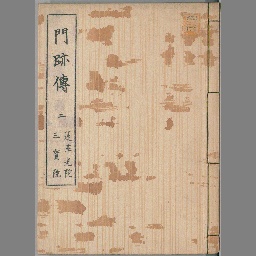 門跡傳
二
蓮花光院
三寳院